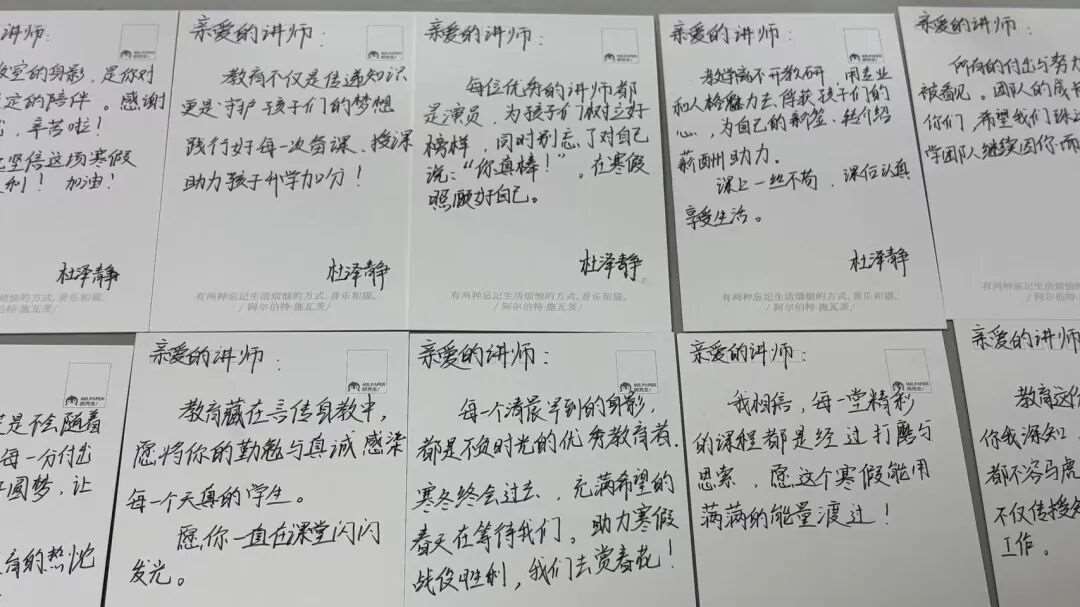 讲师:
教室的身影,是你对
定的陪伴。感谢
,辛苦啦!
坚信这场寒假
利! 加油!
杜泽静
亲爱的讲师:
教育不仅是传递知识
更是守护孩子们的梦想
践行好每一次备课、授课
助力孩子升学加分!
杜泽静
有两种忘记生活烦恼的方式,音乐和猫。
/ 阿尔伯特·施瓦茨 /
亲爱的讲师:
每位优秀的讲师都
是演员,为孩子们树立好
榜样,同时别忘了对自己
说:“你真棒!”。在寒假
照顾好自己。
杜泽静
有两种忘记生活烦恼的方式,音乐和猫。
/ 阿尔伯特·施瓦茨 /
亲爱的讲师:
教学离不开教研,用专业
和人格魅力去俘获孩子们的
心,为自己的新签、转介绍
薪酬助力。
课上一丝不苟,课后认真
享受生活。
杜泽静
有两种忘记生活烦恼的方式,音乐和猫。
/ 阿尔伯特·施瓦茨 /
亲爱的讲师:
所有的付出与努力
被看见。团队的成长
你们,希望我们
学团队继续因你而
是不会随着
每一分付出
圆梦,让
育的热忱
亲爱的讲师:
教育藏在言传身教中,
愿将你的勤勉与真诚感染
每一个天真的学生。
愿你一直在课堂闪闪
发光。
亲爱的讲师:
每一个清晨早到的身影,
都是不负时光的优秀教育者.
寒冬终会过去,充满希望的
春天在等待我们。助力寒假
战役胜利,我们去赏春花!
亲爱的讲师:
我相信,每一堂精彩
的课程都是经过打磨与
思索,愿这个寒假能用
满满的能量渡过!
亲爱的讲
教育这
你我深知,
都不容马虎
不仅传授知
工作。